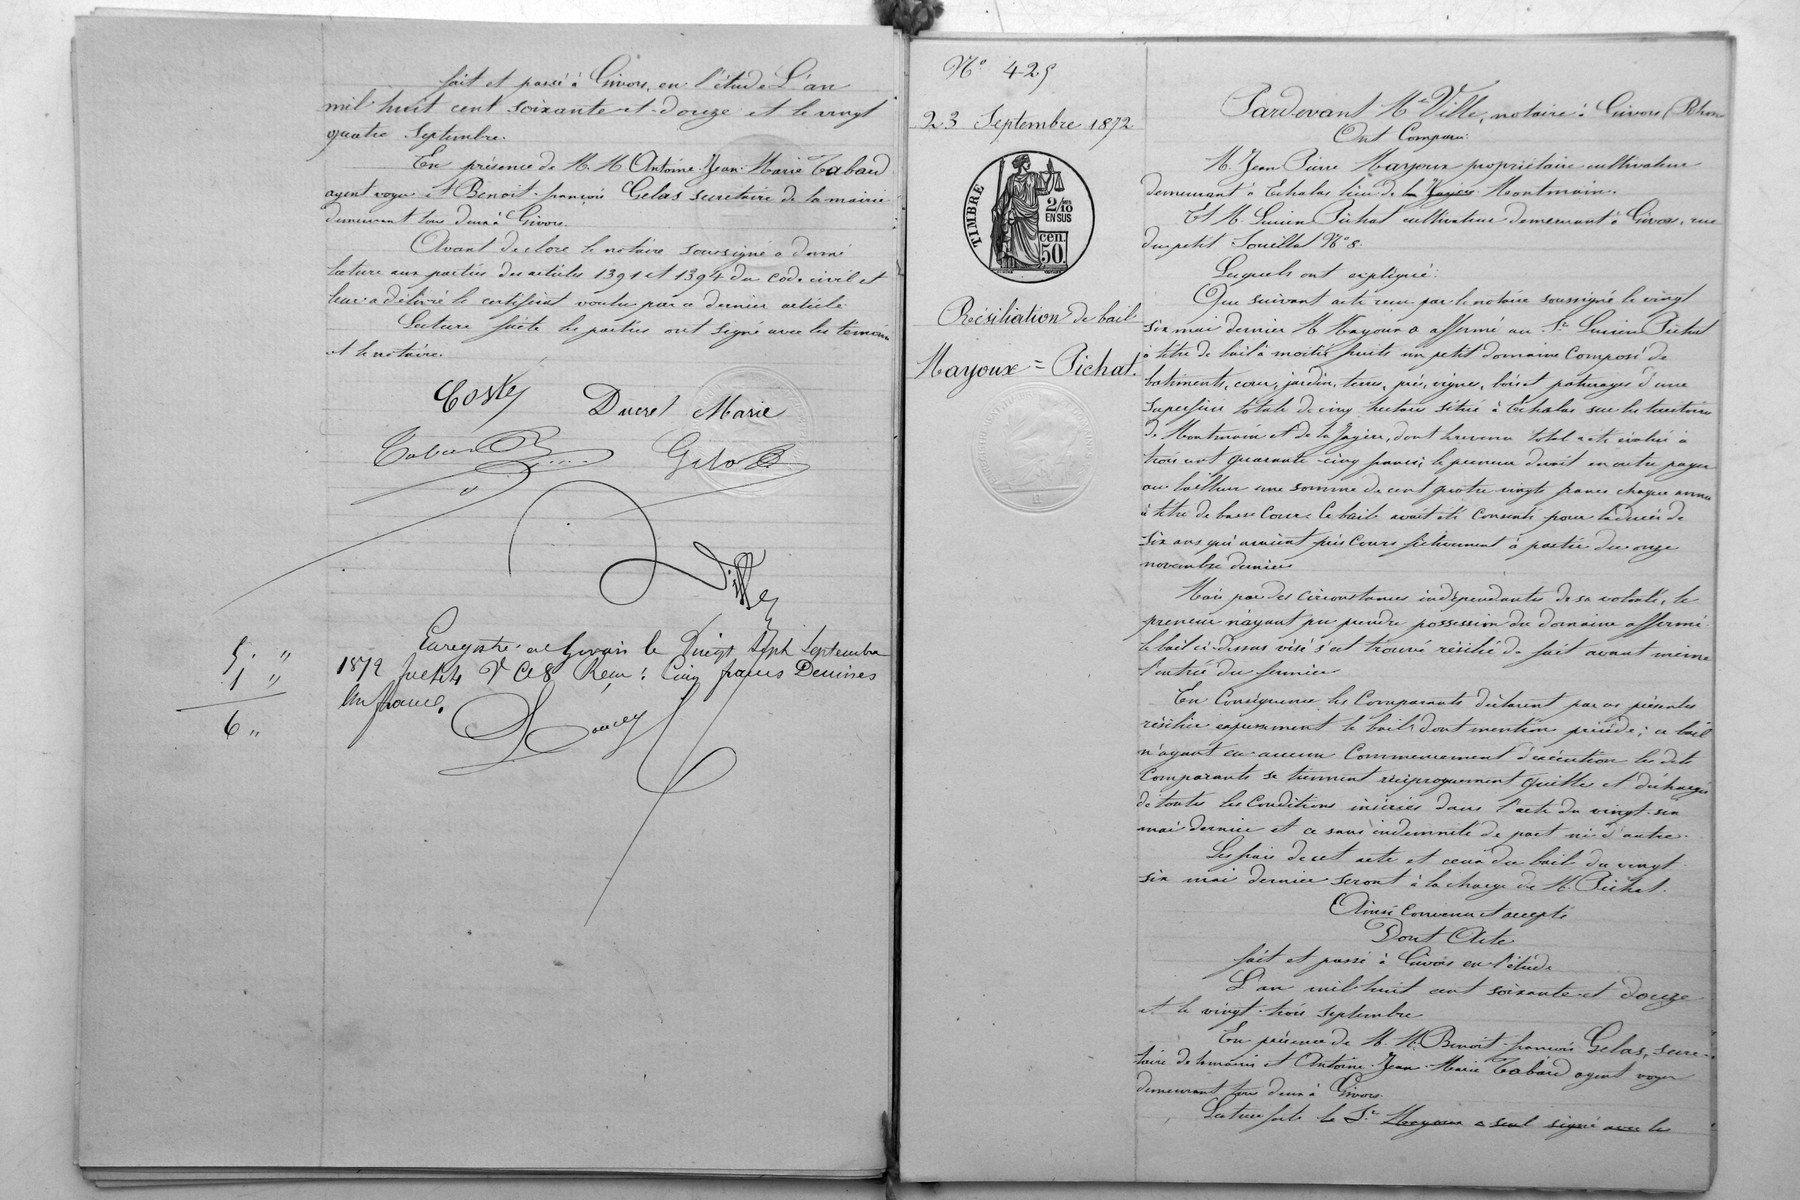 fait et passé à Givors, en l'étude L'an
mil huit cent soixante et douze et le vingt
quatre septembre.
En présence de M. M Antoine Jean Marie Tabard
agent voyer et Benoit françois Gelas secretaire de la mairie
demeurant tous deux à Givors.
Avant de clore le notaire soussigné a donné
lecture aux parties des articles 1391 et 1394 du code civil et
leur a délivré le certificat voulu par ce dernier article
Lecture faite les parties ont signé avec les témoins
et le notaire.
Coste Ducret Marie
Tabard Gelas
Ville
Enregistré à Givors le Vingt Sept Septembre
1872 V C 8 Reçu : Cinq francs Decimes
Un franc.
5. "
1 "
6 "
N° 425
23 Septembre 1872
TIMBRE
2/10
EN SUS
cen.
50.
Résiliation de bail
Mayoux = Pichat.
Pardevant Me Ville, notaire à Givors (Rhône
Ont Comparu:
M. Jean Pierre Mayoux propriétaire cultivateur
demeurant à Echalas lieu de la Montmain.
Et M. Lucien Pichat cultivateur demeurant à Givors, rue
du petit Souillat N° 8.
Lesquels ont expliqué:
Que suivant acte reçu par le notaire soussigné le vingt
six mai dernier M. Mayoux a affermé au Sr. Lucien Pichat
à titre de bail à moitié fruits un petit domaine Composé de
batiments, cour, jardin, terres, pré, vignes, bois et paturages d'une
superficie totale de cinq hectares situé à Echalas sur les territoires
de Montmain et de la Jagère, dont le revenu total a été évalué à
trois cent quarante-cinq francs; le preneur devait en outre payer
au bailleur une somme de cent quatre vingts francs chaque année
à titre de basse Cour. Ce bail avait été Consenti pour la durée de
six ans qui avaient pris Cours fictivement à partir du onze
novembre dernier.
Mais par des circonstances indépendantes de sa volonté, le
preneur n'ayant pu prendre possession du domaine affermé
le bail ci-dessus visé s'est trouvé résilié de fait avant même
l'entrée du fermier.
En Conséquence les Comparants déclarent par ces présentes
résilier expressément le bail dont mention précède; ce bail
n'ayant eu aucun Commencement d'exécution les dits
Comparants se tiennent réciproquement quittes et déchargés
de toutes les Conditions insérées dans l'acte du vingt-six
mai dernier et ce sans indemnité de part ni d'autre.
Les frais de cet acte et ceux du bail du vingt
six mai dernier seront à la charge de M. Pichat.
Ainsi Convenu et accepté
Dont Acte
fait et passé à Givors en l'étude
L'an mil huit cent soixante et douze
et le vingt-trois septembre
En présence de M. M. Benoit françois Gelas, secré-
taire de la mairie et Antoine Jean Marie Tabard agent voyer
demeurant tous deux à Givors.
Lecture faite le Sr. Mayoux a seul signé avec les